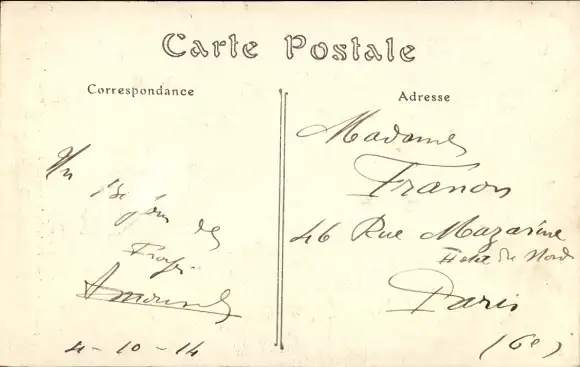 Carte Postale
Correspondance
Un
de
4-10-14
Adresse
Madame
Franon
46 Rue Mazarine
Hotel du Nord
Paris
(6e)